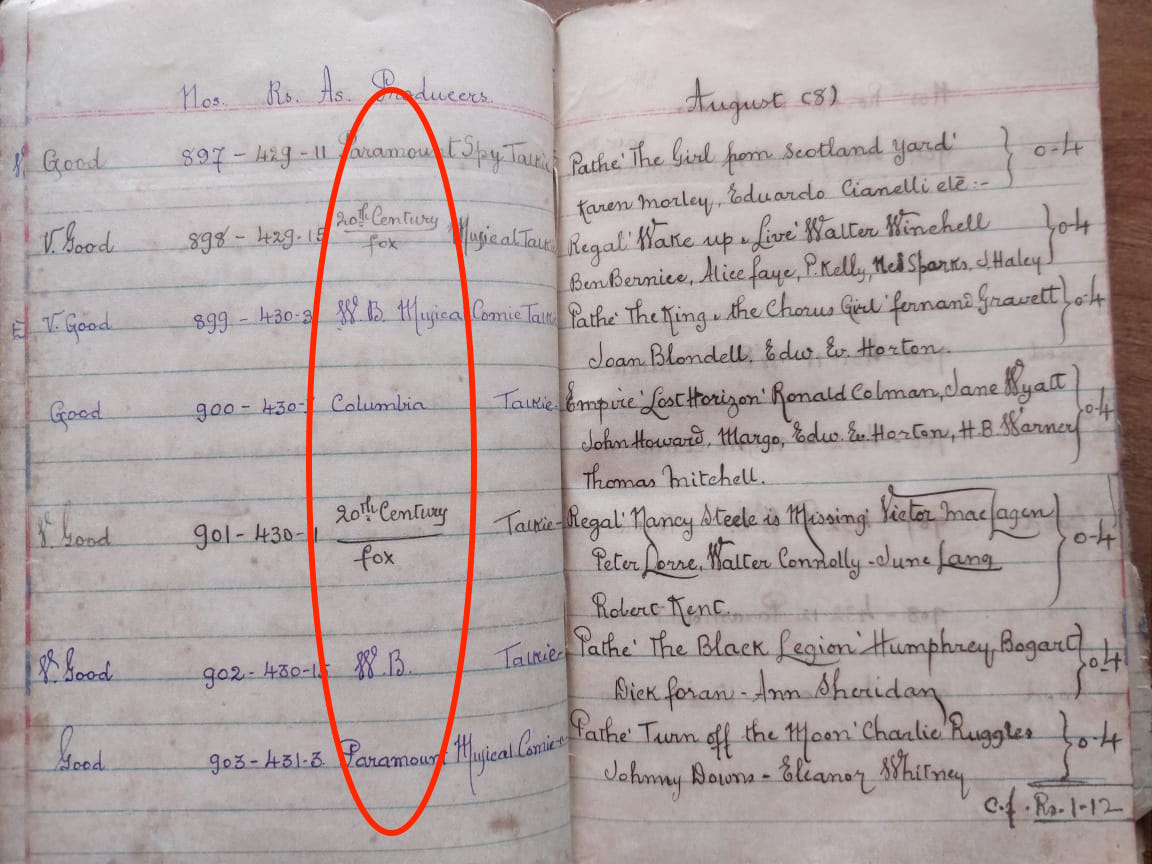 Nos. Rs. As. Producers.
Good 897 - 429 - 11 Paramount Spy Talkie
V. Good 898 - 429 - 15 20th Century Musical Talkie
fox
V. Good 899 - 430 - 3 W.B. Musical Comic Talkie
Good 900 - 430 - Columbia Talkie
V. Good 901 - 430 - 11 20th Century Talkie -
fox
V. Good 902 - 430 - 15 W.B. Talkie -
Good 903 - 431 - 3. Paramount Musical Comic
August (8)
Pathe' The Girl from Scotland yard' 0-4
Karen Morley, Eduardo Cianelli etc :-
Regal' Wake up & Live' Walter Winchell 0-4
Ben Bernice, Alice faye, P. Kelly, Ned Sparks, J. Haley
Pathe' The King & the Chorus Girl' fernand Gravett 0-4
Joan Blondell, Edw. Ev. Horton.
Empire' Lost Horizon' Ronald Colman, Jane Wyatt
John Howard, Margo, Edw. Ev. Horton, H.B. Warner 0-4
Thomas Mitchell.
Regal' Nancy Steele is Missing' Victor Maclagen
Peter Lorre, Walter Connolly - June Lang 0-4
Robert Kent.
Pathe' The Black Legion' Humphrey Bogart 0-4
Dick foran - Ann Sheridan
Pathe' Turn off the Moon' Charlie Ruggles 0-4
Johnny Downs - Eleanor Whitney
C.f. Rs. 1-12